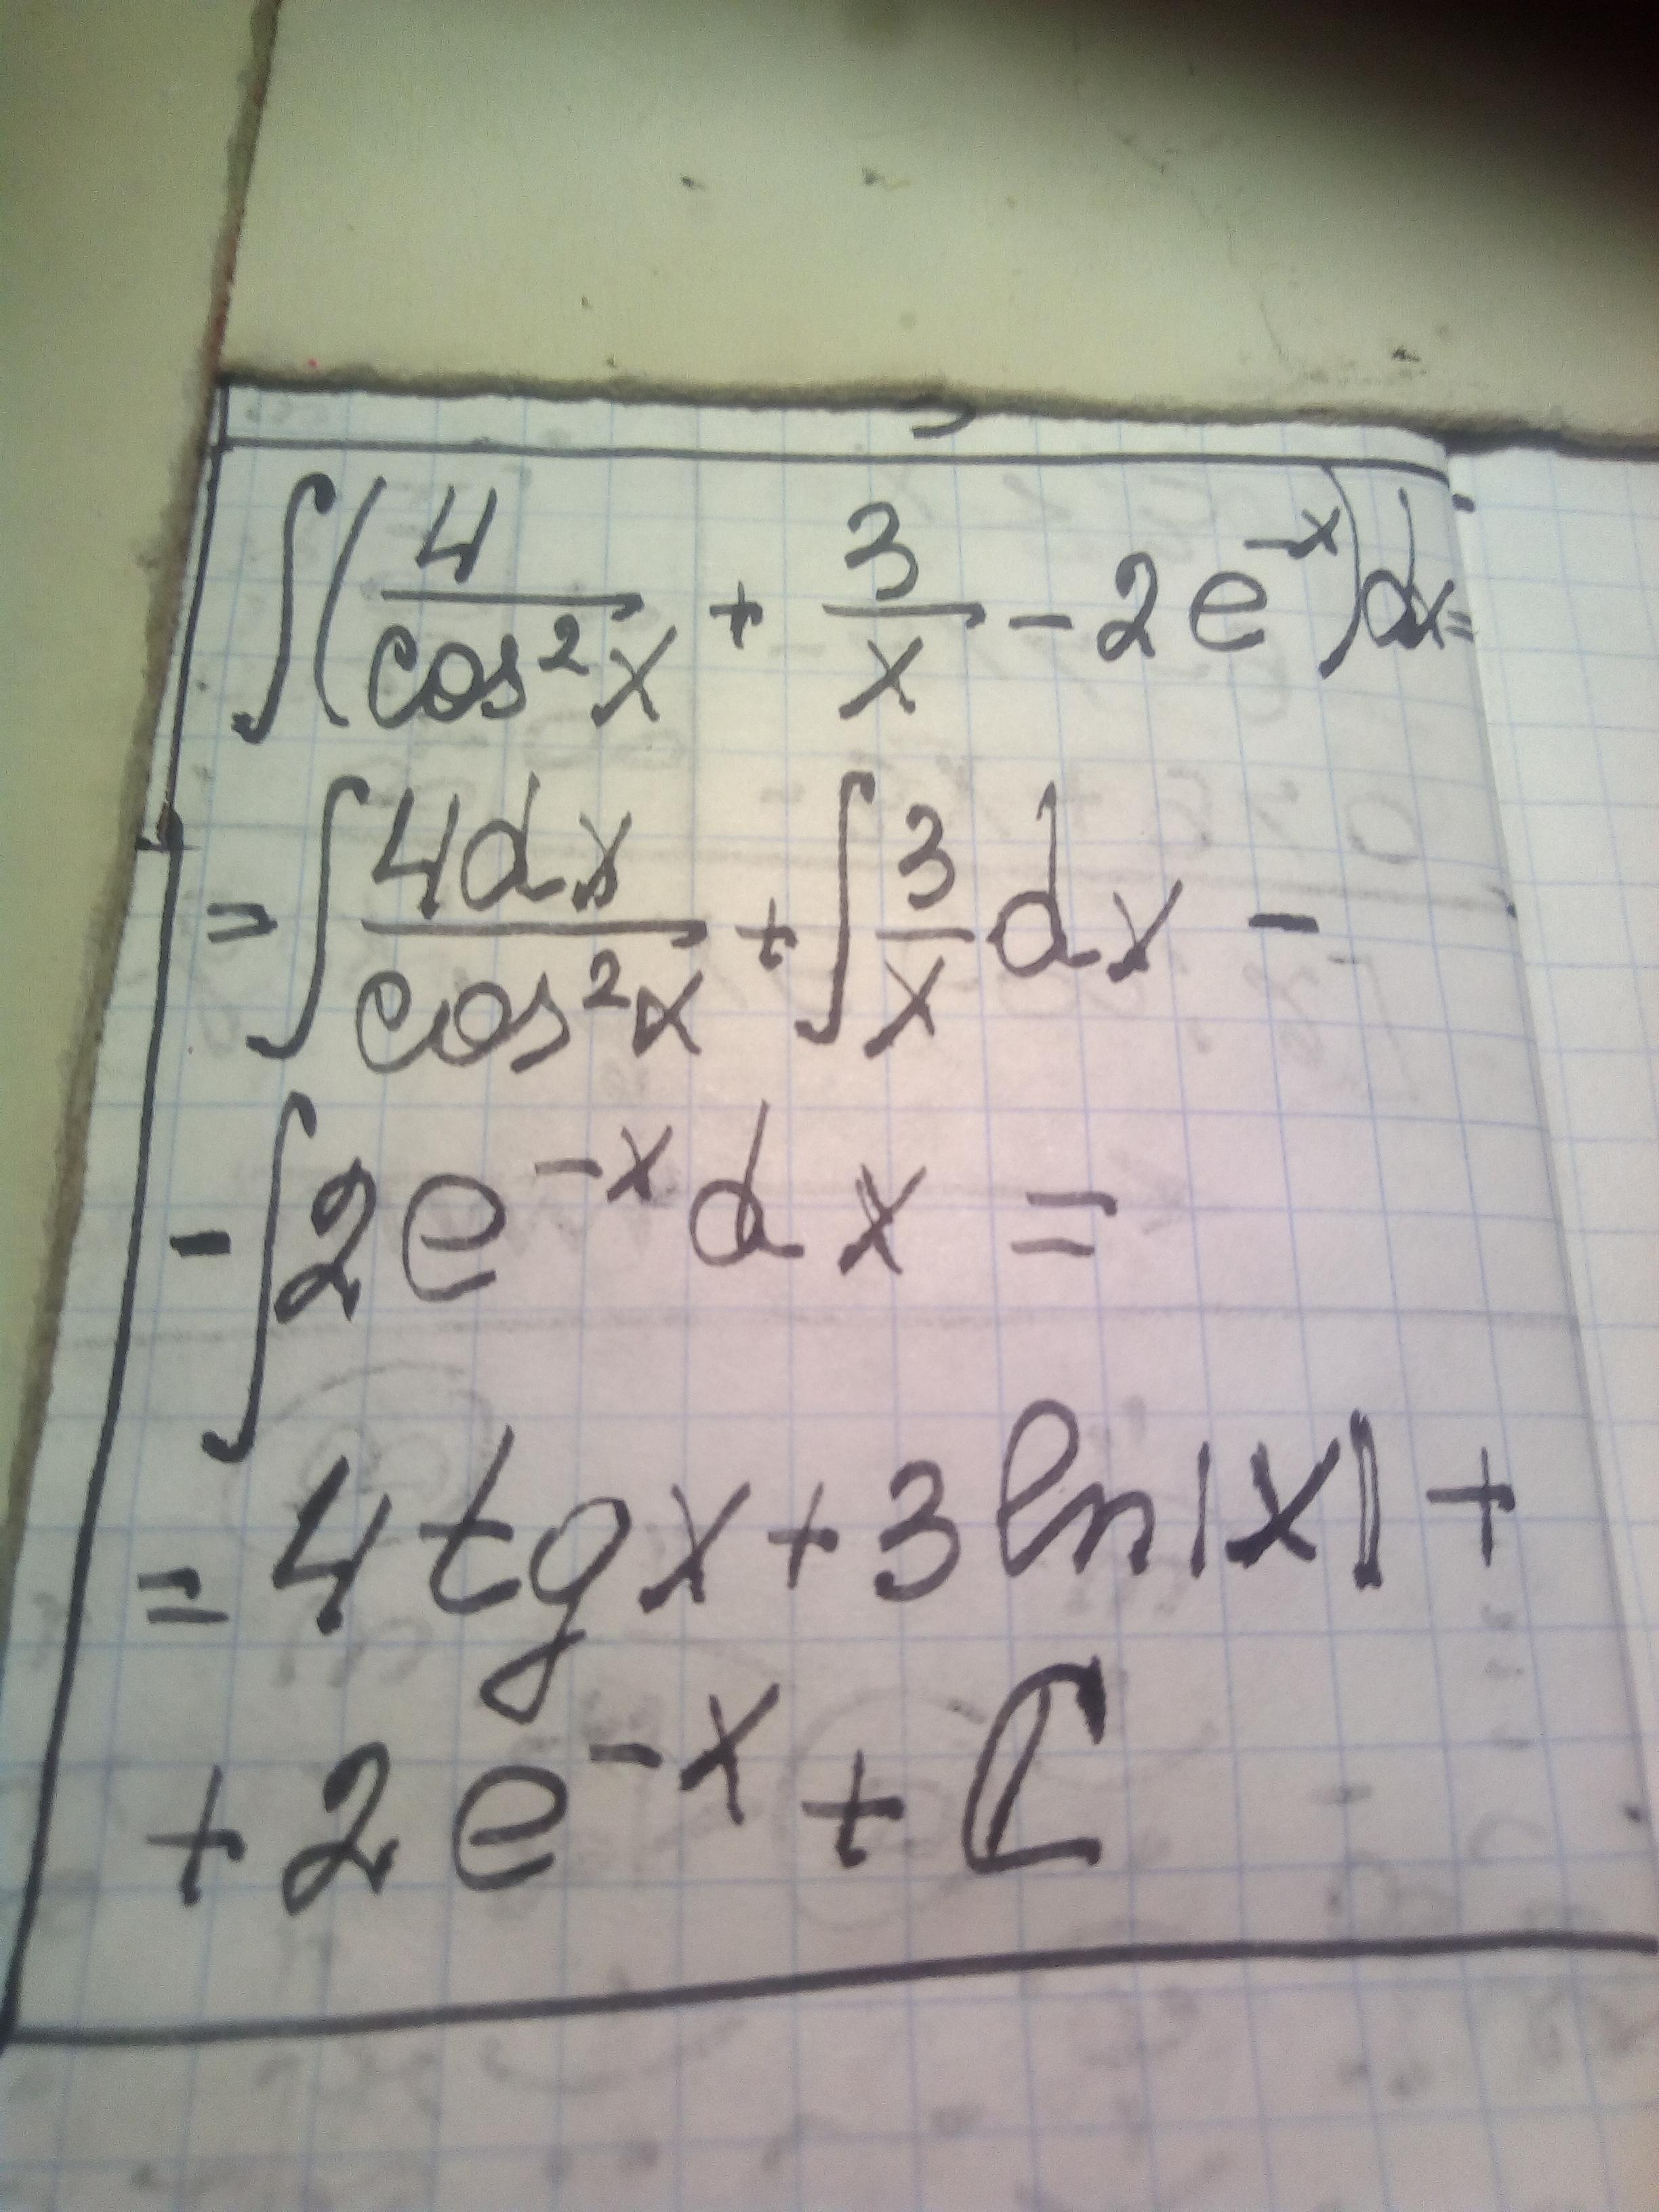 ∫(4/cos²x + 3/x - 2e⁻ˣ)dx =
= ∫4dx/cos²x + ∫3/x dx -
- ∫2e⁻ˣdx =
= 4tgx + 3ln|x| +
+ 2e⁻ˣ + C